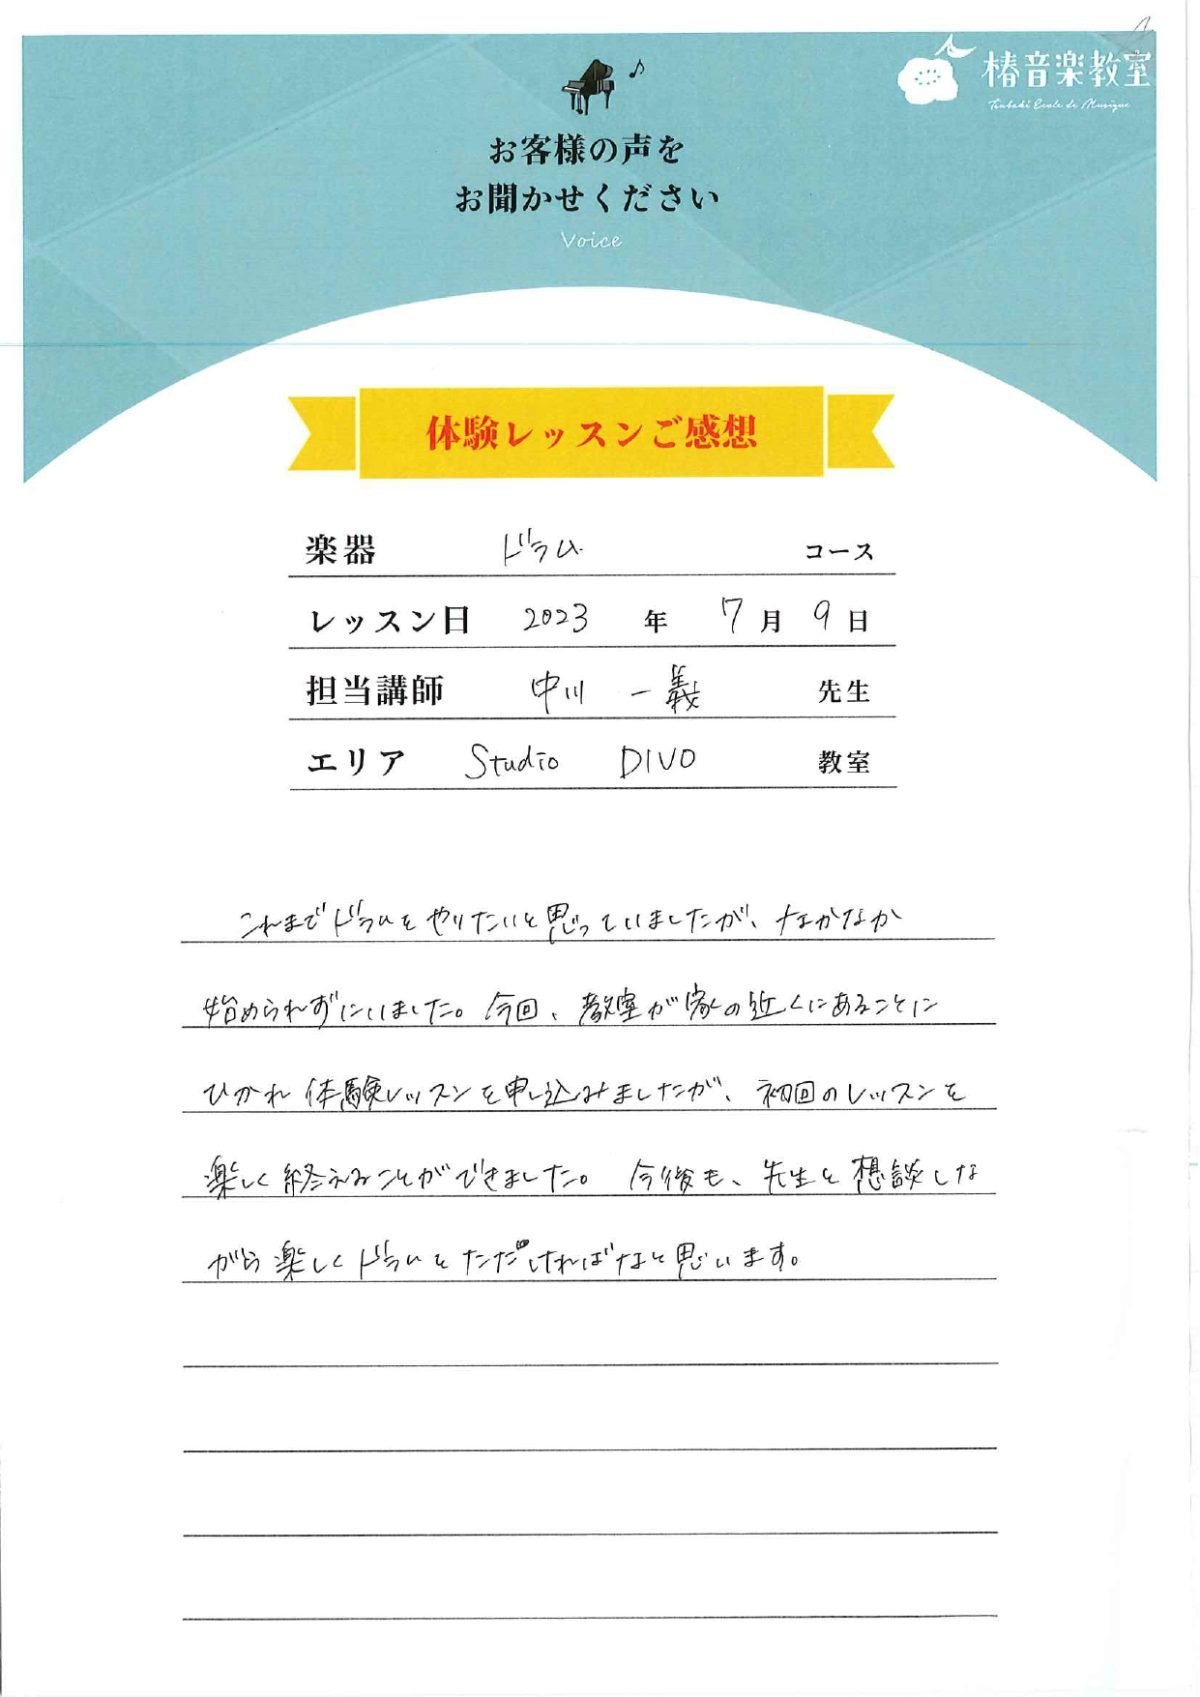 椿音楽教室
Tsubaki Ecole de Musique
お客様の声を
お聞かせください
Voice
体験レッスンご感想
楽器 ドラム コース
レッスン日 2023 年 7 月 9 日
担当講師 中川 一義 先生
エリア Studio DIVO 教室
これまでドラムをやりたいと思っていましたが、なかなか
始められずにいました。今回、教室が家の近くにあることに
ひかれ体験レッスンを申し込みましたが、初回のレッスンを
楽しく終えることができました。今後も、先生と想談しな
がら楽しくドラムをただければなと思います。